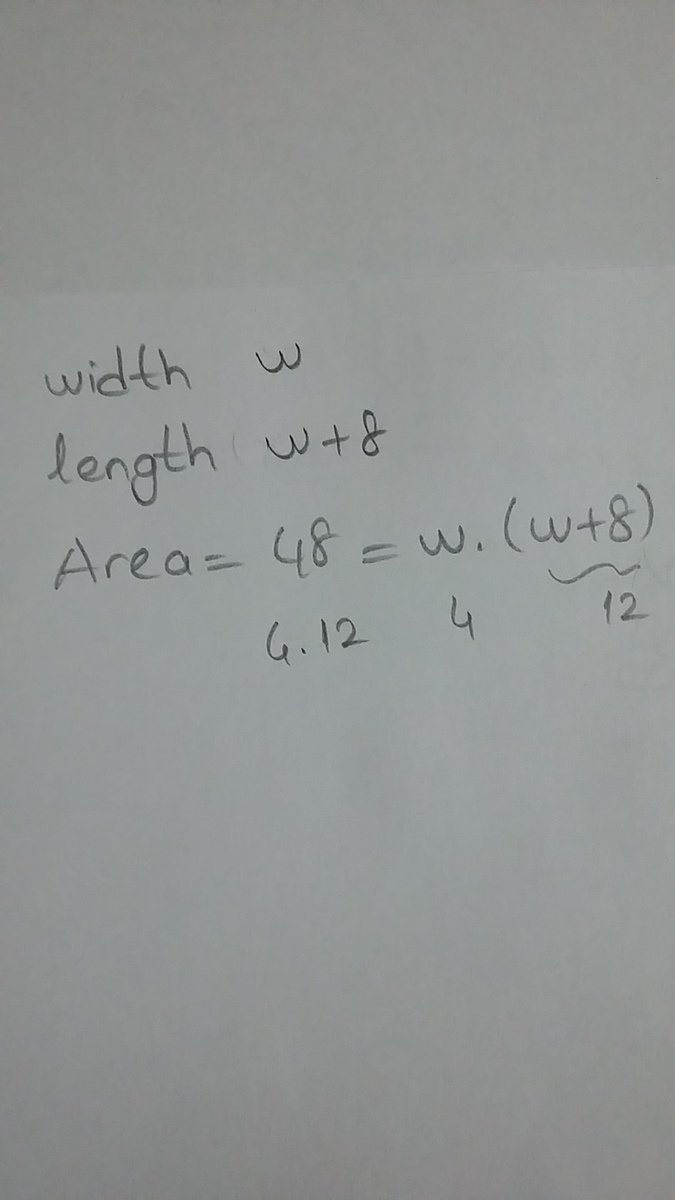 width w
length w+8
Area= 48 = w.(w+8)
4.12 4 12